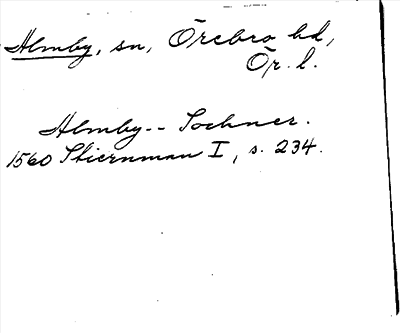 Almby, sn, Örebro hd,
Ör. l.
Almby-- Sochner.
1560 Stiernman I, s. 234.